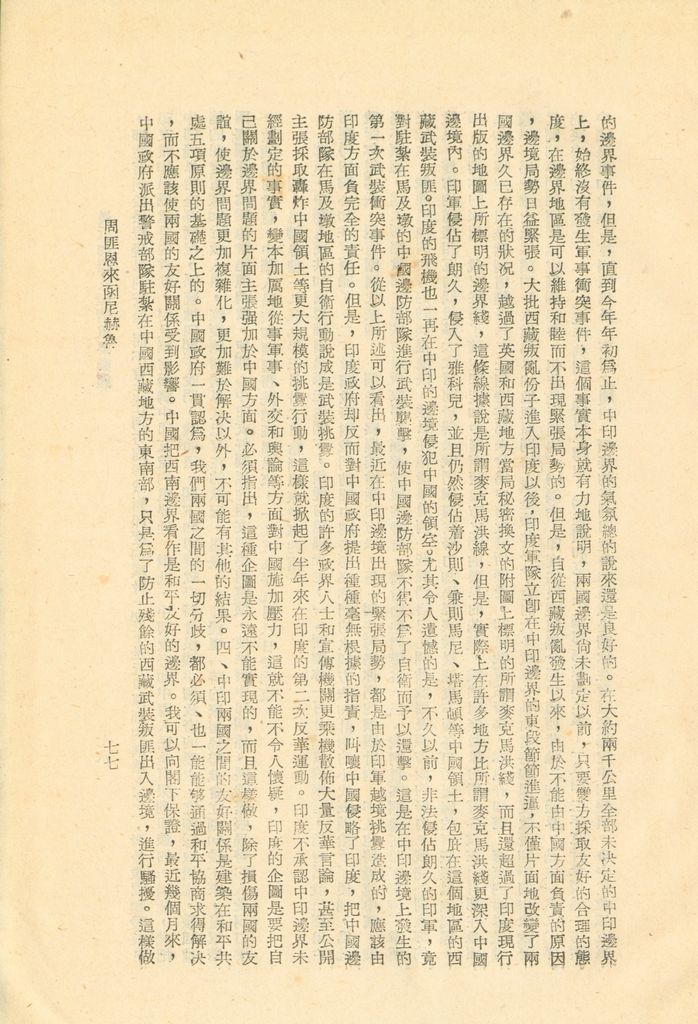 的邊界事件，但是，直到今年年初爲止，中印邊界的氣氛總的說來還是良好的。在大約兩千公里全部未決定的中印邊界
上，始終沒有發生軍事衝突事件，這個事實本身就有力地說明，兩國邊界尙未劃定以前，只要雙方採取友好的合理的態
度，在邊界地區是可以維持和睦而不出現緊張局勢的。但是，自從西藏叛亂發生以來，由於不能由中國方面負責的原因
，邊境局勢日益緊張。大批西藏叛亂份子進入印度以後，印度軍隊立卽在中印邊界的東段節節進逼，不僅片面地改變了兩
國邊界久已存在的狀況，越過了英國和西藏地方當局秘密換文的附圖上標明的所謂麥克馬洪綫，而且還超過了印度現行
出版的地圖上所標明的邊界綫，這條線據說是所謂麥克馬洪線，但是，實際上在許多地方比所謂麥克馬洪綫更深入中國
邊境內。印軍侵佔了朗久，侵入了雅科兒，並且仍然侵佔着沙則、兼則馬尼、塔馬頓等中國領土，包庇在這個地區的西
藏武裝叛匪。印度的飛機也一再在中印的邊境侵犯中國的領空。尤其令人遺憾的是，不久以前，非法侵佔朗久的印軍，竟
對駐紮在馬及墩的中國邊防部隊進行武裝襲擊，使中國邊防部隊不得不爲了自衛而予以還擊。這是在中印邊境上發生的
第一次武裝衝突事件。從以上所述可以看出，最近在中印邊境出現的緊張局勢，都是由於印軍越境挑釁造成的，應該由
印度方面負完全的責任。但是，印度政府却反而對中國政府提出種種毫無根據的指責，叫嚷中國侵略了印度，把中國邊
防部隊在馬及墩地區的自衛行動說成是武裝挑釁。印度的許多政界人士和宣傳機關更乘機散佈大量反華言論，甚至公開
主張採取轟炸中國領土等更大規模的挑釁行動，這樣就掀起了半年來在印度的第二次反華運動。印度不承認中印邊界未
經劃定的事實，變本加厲地從事軍事、外交和輿論等方面對中國施加壓力，這就不能不令人懷疑，印度的企圖是要把自
己關於邊界問題的片面主張强加於中國方面。必須指出，這種企圖是永遠不能實現的，而且這樣做，除了損傷兩國的友
誼，使邊界問題更加複雜化，更加難於解決以外，不可能有其他的結果。四、中印兩國之間的友好關係是建築在和平共
處五項原則的基礎之上的。中國政府一貫認爲，我們兩國之間的一切分歧，都必須、也一能能够通過和平協商求得解决
，而不應該使兩國的友好關係受到影響。中國把西南邊界看作是和平友好的邊界。我可以向閣下保證，最近幾個月來，
中國政府派出警戒部隊駐紮在中國西藏地方的東南部，只是爲了防止殘餘的西藏武裝叛匪出入邊境，進行騷擾。這樣做
周匪恩來函尼赫魯
七七